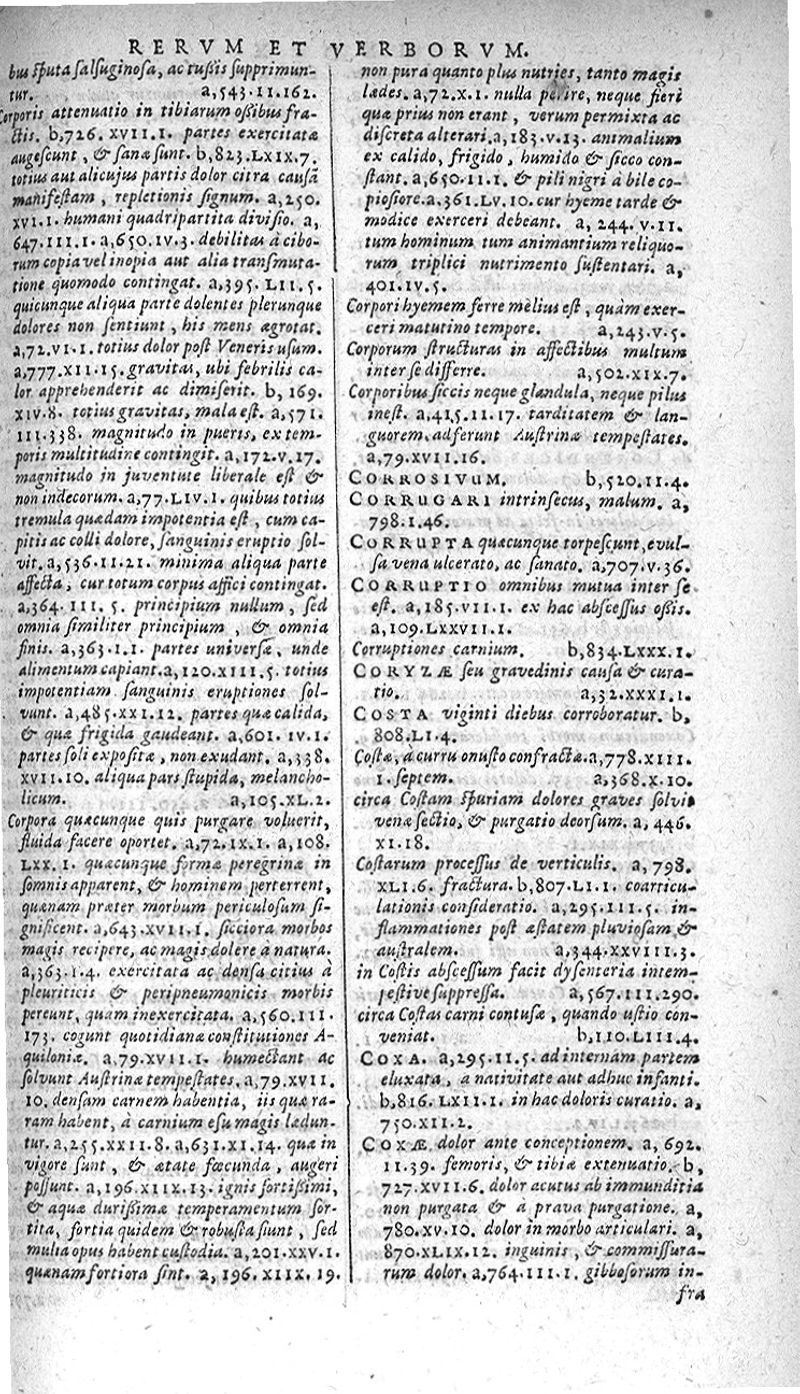 RERVM ET VERBORVM.
bus sputa salsuginosa, ac tussis supprimun-
tur. a,543.II.162.
Corporis attenuatio in tibiarum ossibus fra-
ctis. b,726. XVII.I. partes exercitatæ
augescunt, & sanæ sunt. b,823.LXIX.7.
totius aut alicujus partis dolor citra causã
manifestam, repletionis signum. a,250.
XVI.I. humani quadripartita divisio. a,
647.III.I. a,650.IV.3. debilitas à cibo-
rum copia vel inopia aut alia transmuta-
tione quomodo contingat. a,395. LII.5.
quicunque aliqua parte dolentes plerunque
dolores non sentiunt, his mens ægrotat.
a,72.VI.I. totius dolor post Veneris usum.
a,777.XII.15. gravitas, ubi febrilis ca-
lor apprehenderit ac dimiserit. b, 169.
XIV.8. totius gravitas, mala est. a,571.
III.338. magnitudo in pueris, ex tem-
poris multitudine contingit. a,172.V.17.
magnitudo in juventute liberale est &
non indecorum. a,77.LIV.I. quibus totius
tremula quædam impotentia est, cum ca-
pitis ac colli dolore, sanguinis eruptio sol-
vit. a,536.II.21. minima aliqua parte
affecta, cur totum corpus affici contingat.
a,364. III. 5. principium nullum, sed
omnia similiter principium, & omnia
finis. a,363.I.I. partes universæ, unde
alimentum capiant. a,120.XIII.5. totius
impotentiam sanguinis eruptiones sol-
vunt. a,485.XXI.12. partes quæ calida,
& quæ frigida gaudeant. a,601. IV.I.
partes soli expositæ, non exudant. a,338.
XVII.10. aliqua pars stupida, melancho-
licum. a,105.XL.2.
Corpora quæcunque quis purgare voluerit,
fluida facere oportet. a,72.IX.I. a,108.
LXX.I. quæcunque formæ peregrinæ in
somnis apparent, & hominem perterrent,
quænam præter morbum periculosum si-
gnificent. a,643.XVII.I. sicciora morbos
magis recipere, ac magis dolere à natura.
a,363.I.4. exercitata ac densa citius à
pleuriticis & peripneumonicis morbis
pereunt, quam inexercitata. a,560.III.
173. cogunt quotidianæ constitutiones A-
quiloniæ. a,79.XVII.I. humectant ac
solvunt Austrinæ tempestates. a,79.XVII.
10. densam carnem habentia, iis quæ ra-
ram habent, à carnium esu magis lædun-
tur. a,255.XXII.8. a,631.XI.14. quæ in
vigore sunt, & ætate fœcunda, augeri
possunt. a,196.XIIX.13. ignis fortissimi,
& aquæ durissimæ temperamentum for-
tita, fortia quidem & robusta siunt, sed
multa opus habent custodia. a,201.XXV.I.
quænam fortiora sint. a, 196. XIIX. 19.
non pura quanto plus nutries, tanto magis
lædes. a,72.X.I. nulla perire, neque fieri
quæ prius non erant, verum permixta ac
discreta alterari. a,183.V.13. animalium
ex calido, frigido, humido & sicco con-
stant. a,650.II.I. & pili nigri à bile co-
piosiore. a,361.LV.10. cur hyeme tarde &
modice exerceri debeant. a, 244. V.II.
tum hominum tum animantium reliquo-
rum triplici nutrimento sustentari. a,
401.IV.5.
Corpori hyemem ferre melius est, quàm exer-
ceri matutino tempore. a,243.V.5.
Corporum structuras in affectibus multum
inter se differre. a,502.XIX.7.
Corporibus siccis neque glandula, neque pilus
inest. a,415.II.17. tarditatem & lan-
guorem adferunt Austrinæ tempestates.
a,79.XVII.16.
CORROSIVUM. b,520.II.4.
CORRUGARI intrinsecus, malum. a,
798.I.46.
CORRUPTA quæcunque torpescunt, evul-
sa vena ulcerato, ac sanato. a,707.V.36.
CORRUPTIO omnibus mutua inter se
est. a,185.VII.I. ex hac abscessus ossis.
a,109.LXXVII.I.
Corruptiones carnium. b,834.LXXX.I.
CORYZÆ seu gravedinis causa & cura-
tio. a,32.XXXI.I.
COSTA viginti diebus corroboratur. b,
808.LI.4.
Costæ, à curru onusto confractæ. a,778.XIII.
I. septem. a,368.X.10.
circa Costam spuriam dolores graves solvit
venæ sectio, & purgatio deorsum. a, 446.
XI.18.
Costarum processus de verticulis. a, 798.
XLI.6. fractura. b,807.LI.I. coarticu-
lationis consideratio. a,295.III.5. in-
flammationes post æstatem pluviosam &
australem. a,344.XXVIII.3.
in Costis abscessum facit dysenteria intem-
pestive suppressa. a,567.III.290.
circa Costas carni contusæ, quando ustio con-
veniat. b,110.LIII.4.
COXA. a,295.II.5. ad internam partem
eluxata, a nativitate aut adhuc infanti.
b,816. LXII.I. in hac doloris curatio. a,
750.XII.2.
COXÆ dolor ante conceptionem. a, 692.
II.39. femoris, & tibiæ extenuatio. b,
727.XVII.6. dolor acutus ab immunditia
non purgata & à prava purgatione. a,
780.XV.10. dolor in morbo articulari. a,
870.XLIX.12. inguinis, & commissura-
rum dolor. a,764.III.I. gibbosorum in-
fra